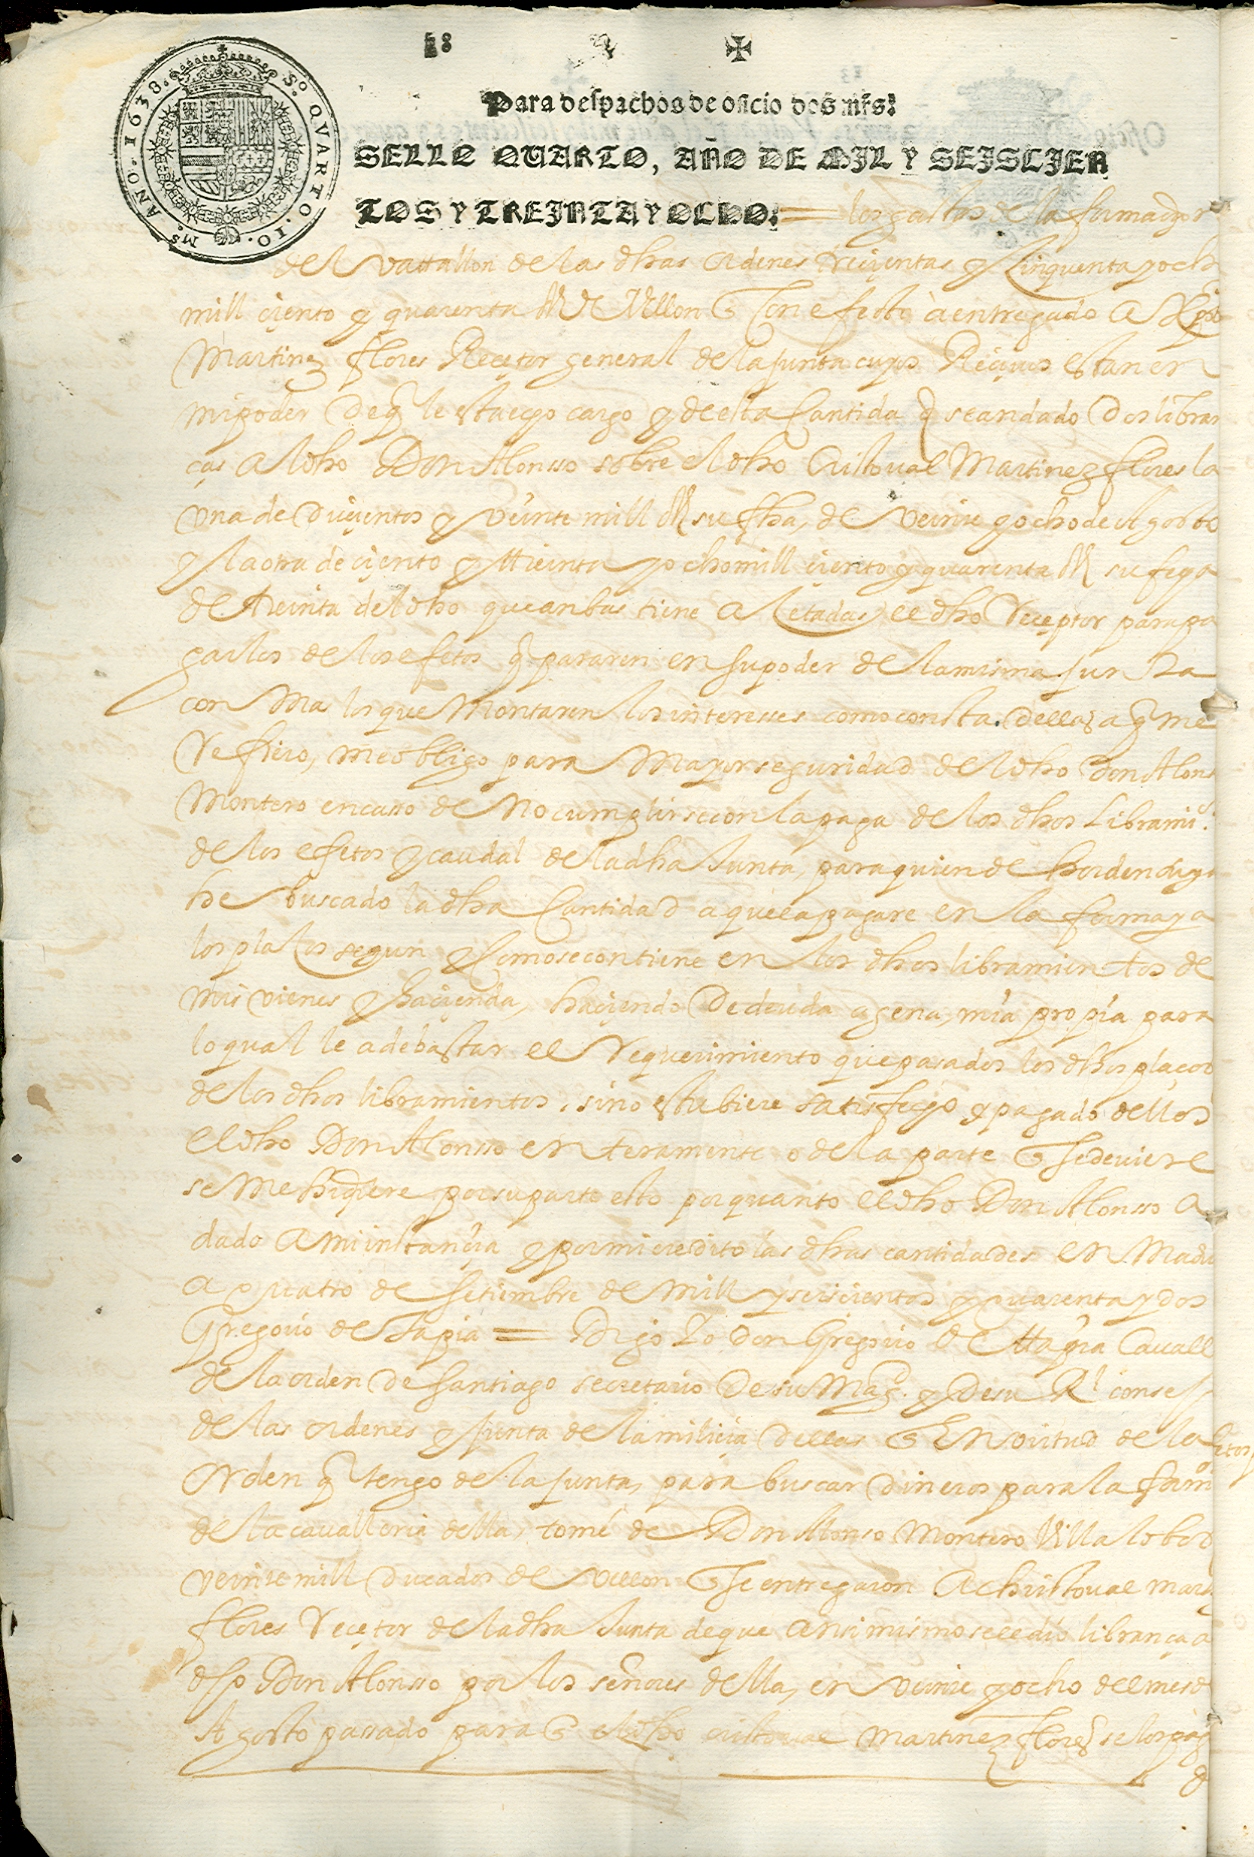 18
Para despachos de oficio dos mrs.
SELLO QVARTO, AÑO DE MIL Y SEISCIEN
TOS Y TREINTA Y OCHO.
Sº. QVARTO. IO. Ms. AÑO. 1638.
= los gastos de la formazon
del vattallon de las dhas ordenes trecientas y cinquenta y ocho
mill ciento y quarenta Rs de Vellon q Con efecto a entregado a Xpal
Martinez flores Recetor general de la junta cuyos Reciuos estan en
mi poder de q le esta echo cargo y de esta Cantidad q se an dado Dos libran
ças al dho Don Alonsso sobre el dho Cristoual Martinez flores la
una de Ducientos y veinte mill Rs su fha, de Veinte y ocho de Agosto
y la otra de ciento y treinta y ocho mill ciento y quarenta Rs su fecha
de treinta del dho que anbas tiene acetadas el dho Receptor para pa
garlos de los efetos q pararen en su poder de la misma junta
con Mas lo que Montaren los intereses como consta Dellas a q me
Refiero, me obligo para Mayor seguridad del dho Don Alonso
Montero en casso de No cumplirse con la paga de los dhos Librami.os
de los efetos y caudal de la dha Junta, para quien de horden suya
he buscado la dha Cantidad a que la pagare en la forma y a
los plaços segun y Como se contiene en los dhos libramientos de
mis vienes y hacienda, haciendo De deuda agena, mia propia para
lo qual le a de bastar el Requerimiento que pasados los dhos plaços
de los dhos libramientos, si no estubiere satisfecho y pagado dellos
el dho Don Alonsso enteramente o de la parte q se deviere
se me hiçiere por su parte esto por quanto el dho Don Alonsso a
dado a mi instançia y por mi credito las dhas cantidades en Madrid
a quatro de Setiembre de mill y seiscientos y quarenta y dos
Gregorio de Tapia = Digo Yo don Gregorio de Tapia Cauall
de la orden De Santiago secretario De su Magd. y De su Rl consejo
de las ordenes y Junta de la milicia dellas q En virtud de la
Orden q tengo de la Junta, para buscar Dineros para la form
de la caualleria della, tomé de Don Alonso Montero Villalobos
veinte mill Ducados de vellon q se entregaron a Christoual martz
flores Recetor de la dha Junta de que ansimismo se le dio librança a
dho Don Alonsso por los señores della, en veinte y ocho del mes de
Agosto passado para q el dho cristoual Martinez flores se los pag